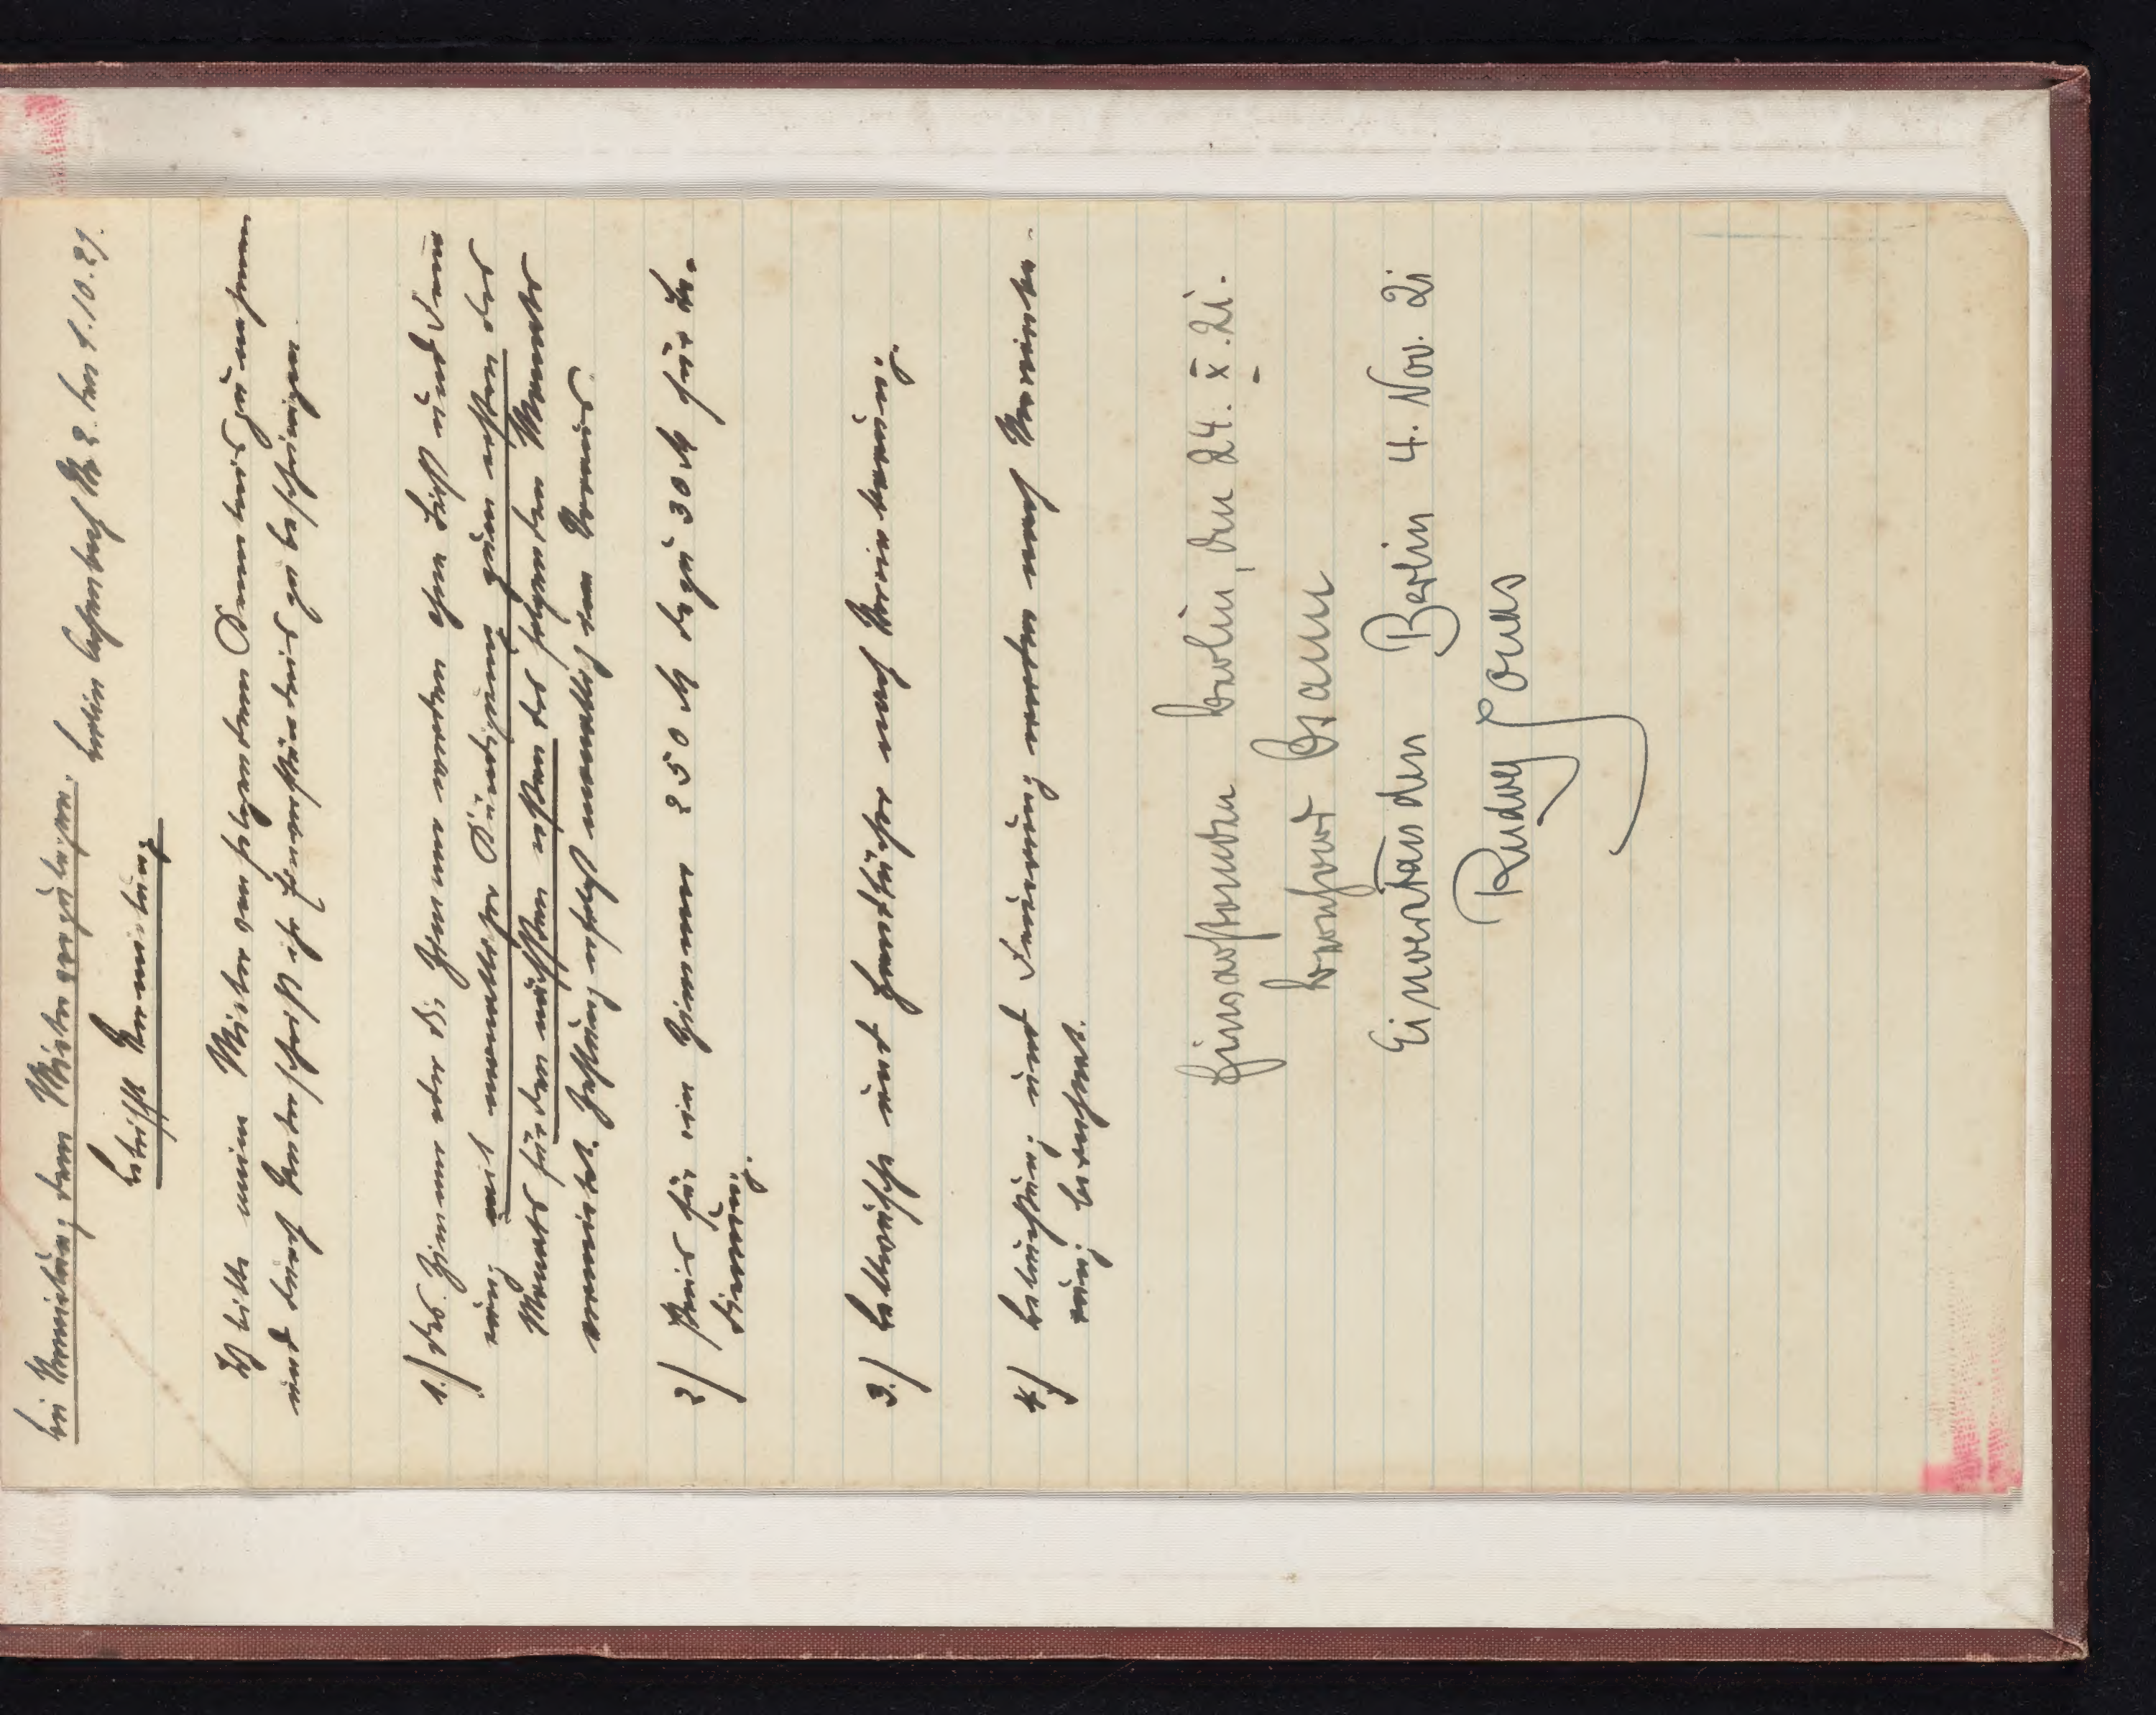 Bei Vermietung dem Mieter vorzulegen.
Berlin 1.10.21.
Betrifft Vermietung.
Ich bitte meine Mieter von folgendem Kenntnis zu nehmen
und durch Unterschrift ihr Einverständnis zu bescheinigen.
1.) Das Zimmer oder die Zimmer werden ohne Licht und Feue
rung mit monatlicher Kündigung zum ersten des
Monats für den nächsten ersten des folgenden Monats
vermietet. Zahlung erfolgt monatlich im Voraus.
2) Preis für ein Zimmer 250 M dazu 30 M für Be-
dienung.
3.) Bettwäsche und Handtücher nach Vereinbarung.
4) Beleuchtung und Feuerung werden nach Vereinba-
rung berechnet.
Einverstanden Berlin, den 24. X. 21.
Einverstanden Berlin 4. Nov. 21
Rudolf Jonas